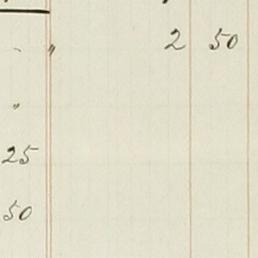 " 2 50
"
25
50